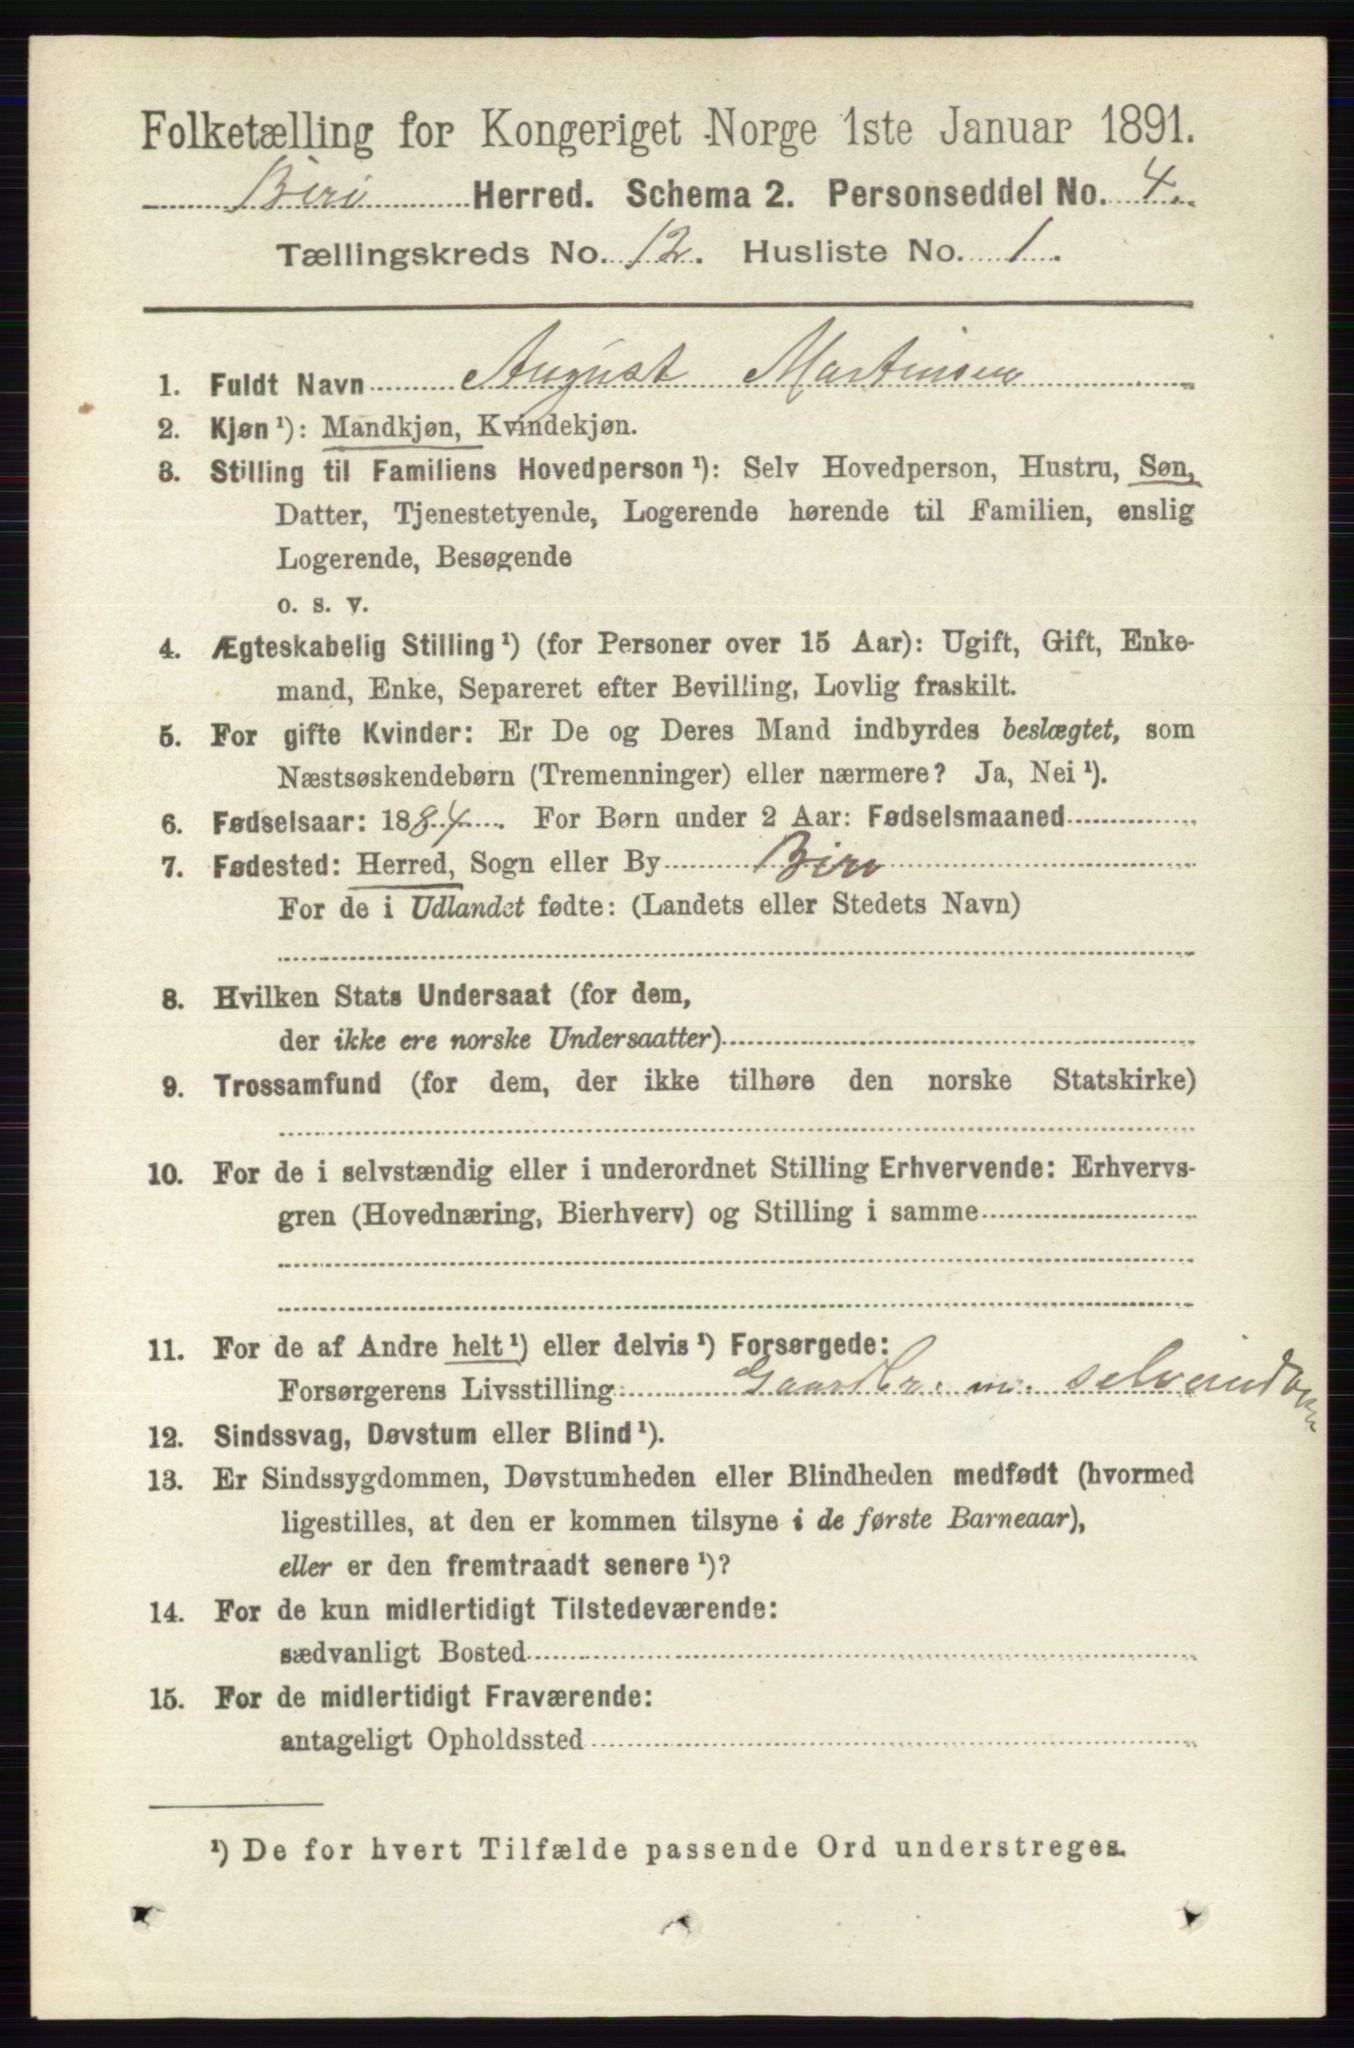 Folketælling for Kongeriget Norge 1ste Januar 1891.
Biri Herred. Schema 2. Personseddel No. 4.
Tællingskreds No. 12. Husliste No. 1.
1. Fuldt Navn August Martinsen
2. Kjøn ¹): Mandkjøn, Kvindekjøn.
3. Stilling til Familiens Hovedperson ¹): Selv Hovedperson, Hustru, Søn,
Datter, Tjenestetyende, Logerende hørende til Familien, enslig
Logerende, Besøgende
o. s. v.
4. Ægteskabelig Stilling ¹) (for Personer over 15 Aar): Ugift, Gift, Enke-
mand, Enke, Separeret efter Bevilling, Lovlig fraskilt.
5. For gifte Kvinder: Er De og Deres Mand indbyrdes beslægtet, som
Næstsøskendebørn (Tremenninger) eller nærmere? Ja, Nei ¹).
6. Fødselsaar: 1884. For Børn under 2 Aar: Fødselsmaaned
7. Fødested: Herred, Sogn eller By Biri
For de i Udlandet fødte: (Landets eller Stedets Navn)
8. Hvilken Stats Undersaat (for dem,
der ikke ere norske Undersaatter)
9. Trossamfund (for dem, der ikke tilhøre den norske Statskirke)
10. For de i selvstændig eller i underordnet Stilling Erhvervende: Erhvervs-
gren (Hovednæring, Bierhverv) og Stilling i samme
11. For de af Andre helt ¹) eller delvis ¹) Forsørgede:
Forsørgerens Livsstilling: Gaardbr. m.
12. Sindssvag, Døvstum eller Blind ¹).
13. Er Sindssygdommen, Døvstumheden eller Blindheden medfødt (hvormed
ligestilles, at den er kommen tilsyne i de første Barneaar),
eller er den fremtraadt senere ¹)?
14. For de kun midlertidigt Tilstedeværende:
sædvanligt Bosted
15. For de midlertidigt Fraværende:
antageligt Opholdssted
¹) De for hvert Tilfælde passende Ord understreges.